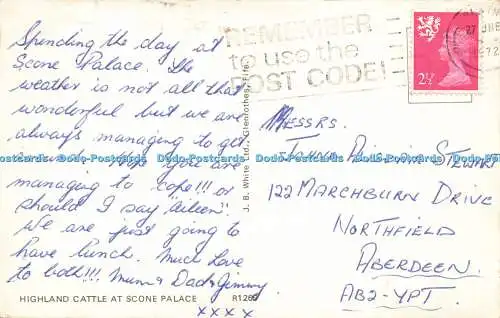 Spending the day at
Scone Palace. The
weather is not all that
wonderful but we are
always managing to get
you are
managing to cope!!! or
should I say "Aileen".
We are just going to
have lunch. Much Love
to both!!! Mum & Dad & Jimmy
xxxx
HIGHLAND CATTLE AT SCONE PALACE R1269
J. B. White Ltd., Glenrothes, Fife.
REMEMBER
to use the
POST CODE!
27 JNE
1972
2½
MESSRS.
STEWART
122 MARCHBURN DRIVE
NORTHFIELD
ABERDEEN.
AB2-7PT.
Dodo-Postcards Dodo-Postcards Dodo-Postcards Dodo-Postcards